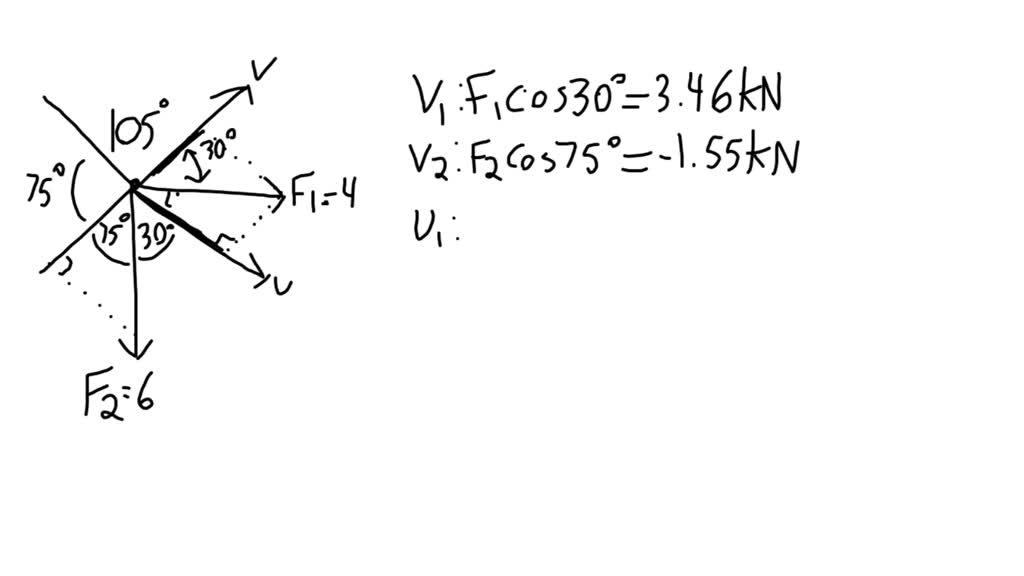 V
105°
30°
75°
F₁=4
75°
30°
U
F₂=6
V₁:F₁cos30°=3.46kN
V₂:F₂cos75°=-1.55kN
U₁: